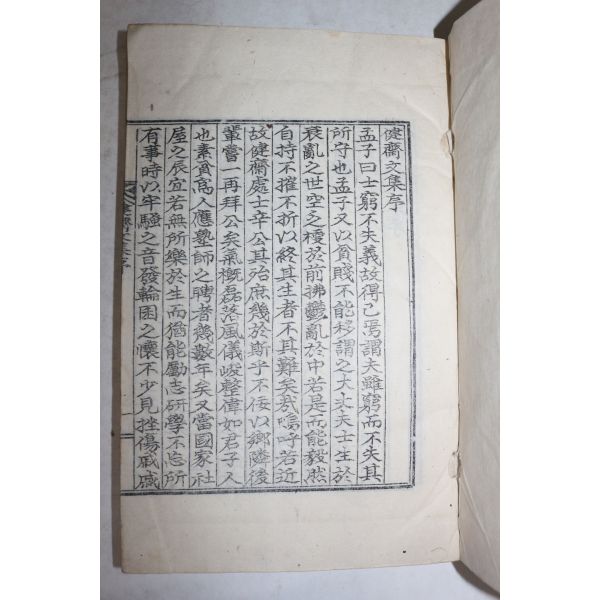 健齋文集序
孟子曰士窮不失義故得己焉謂夫雖窮而不失其
所守也孟子又以貧賤不能移謂之大丈夫士生於
衰亂之世空乏橈於前拂鬱亂於中若是而能毅然
自持不摧不折以終其生者不其難矣哉嗚呼若近
故健齋處士辛公其殆庶幾於斯乎不佞以鄉隣後
輩嘗一再拜公矣氣槪磊落風儀峻整偉如君子人
也素貧窩人應塾師之聘者幾數年矣又當國家社
屋之辰宜若無所樂於生而猶能勵志硏學不忘所
有事時以牢騷之音發輪囷之懷不少見挫傷戚戚